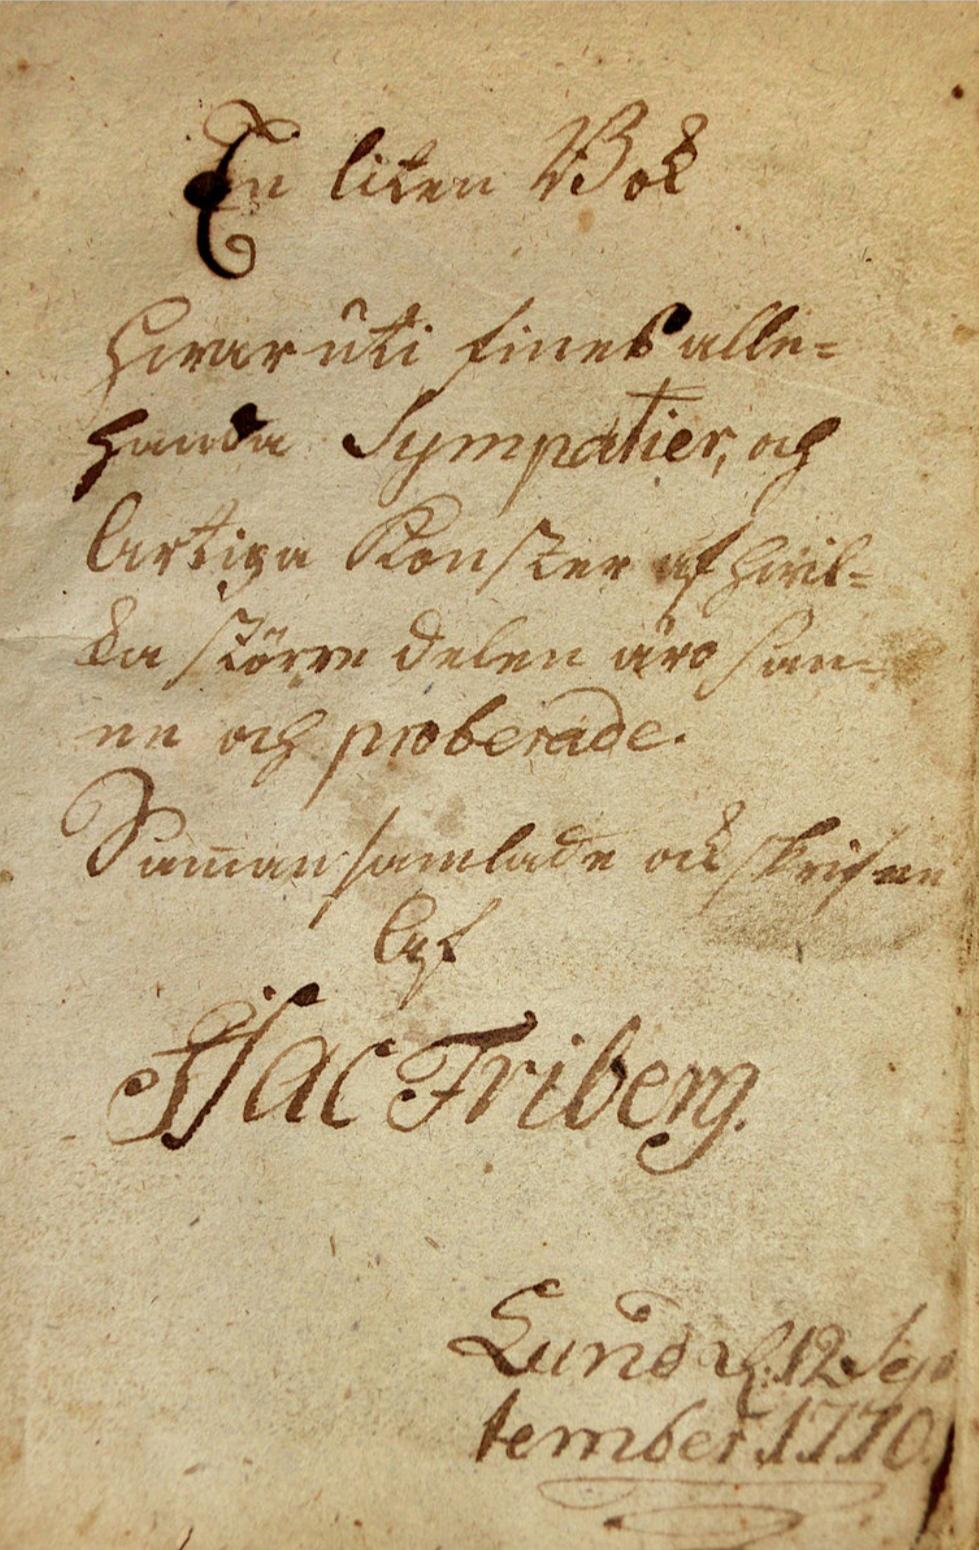 En liten Bok
Hwaruti fines alle=
handa Sympatier, och
Artiga Konster af hwil=
ka större delen äro san=
ne och proberade.
Saman samlade ock skrifne
Af
Isac Friberg.
Lund d. 12 Sep
tember 1770.